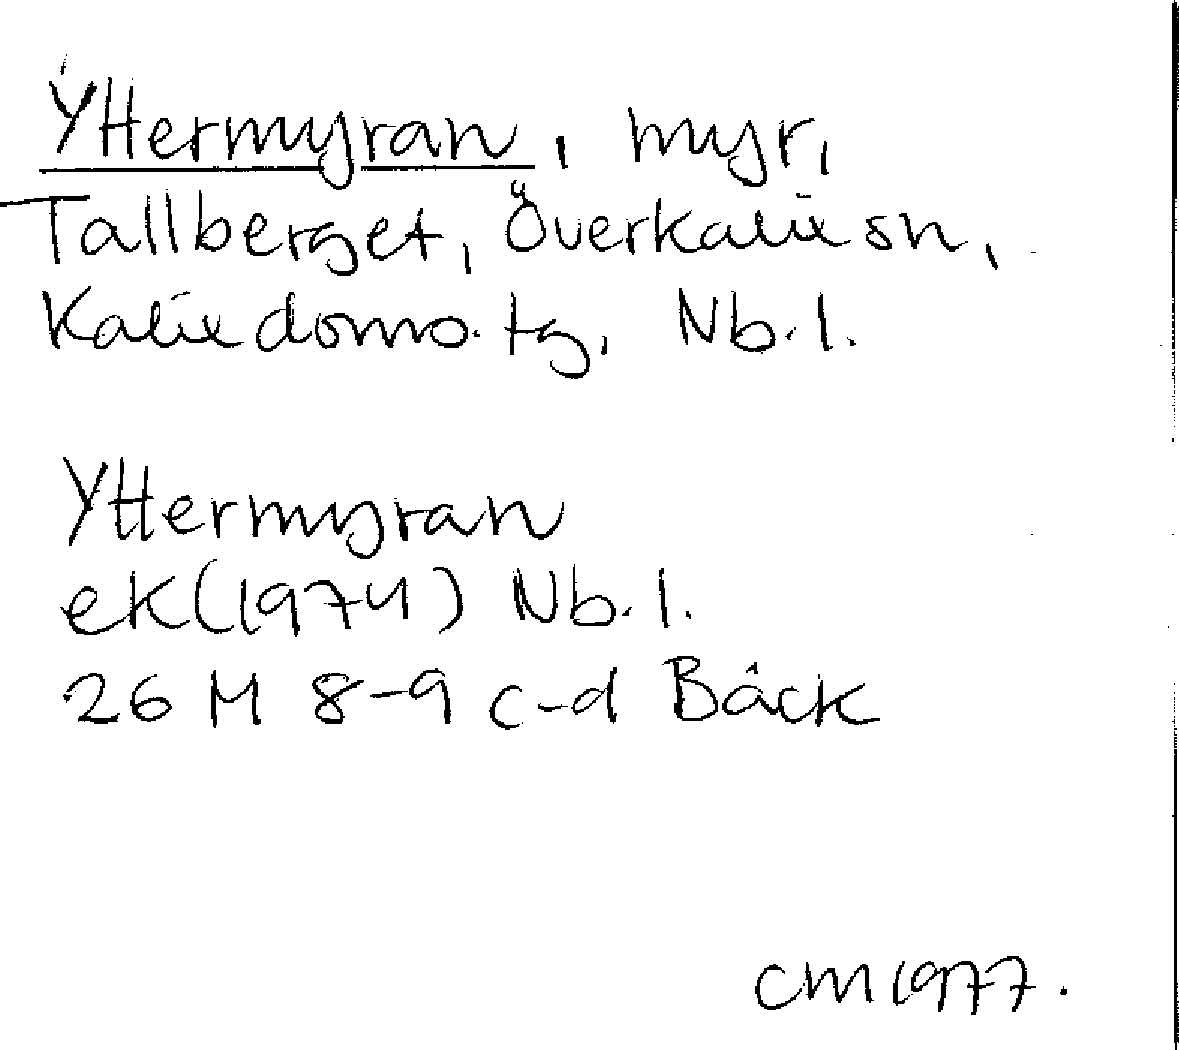 Yttermyran, myr,
Tallberget, Överkalix sn,
Kalix doms. tg, Nb. l.
Yttermyran
ek (1974) Nb. l.
26 M 8-9 c-d Bäck
CM 1977.